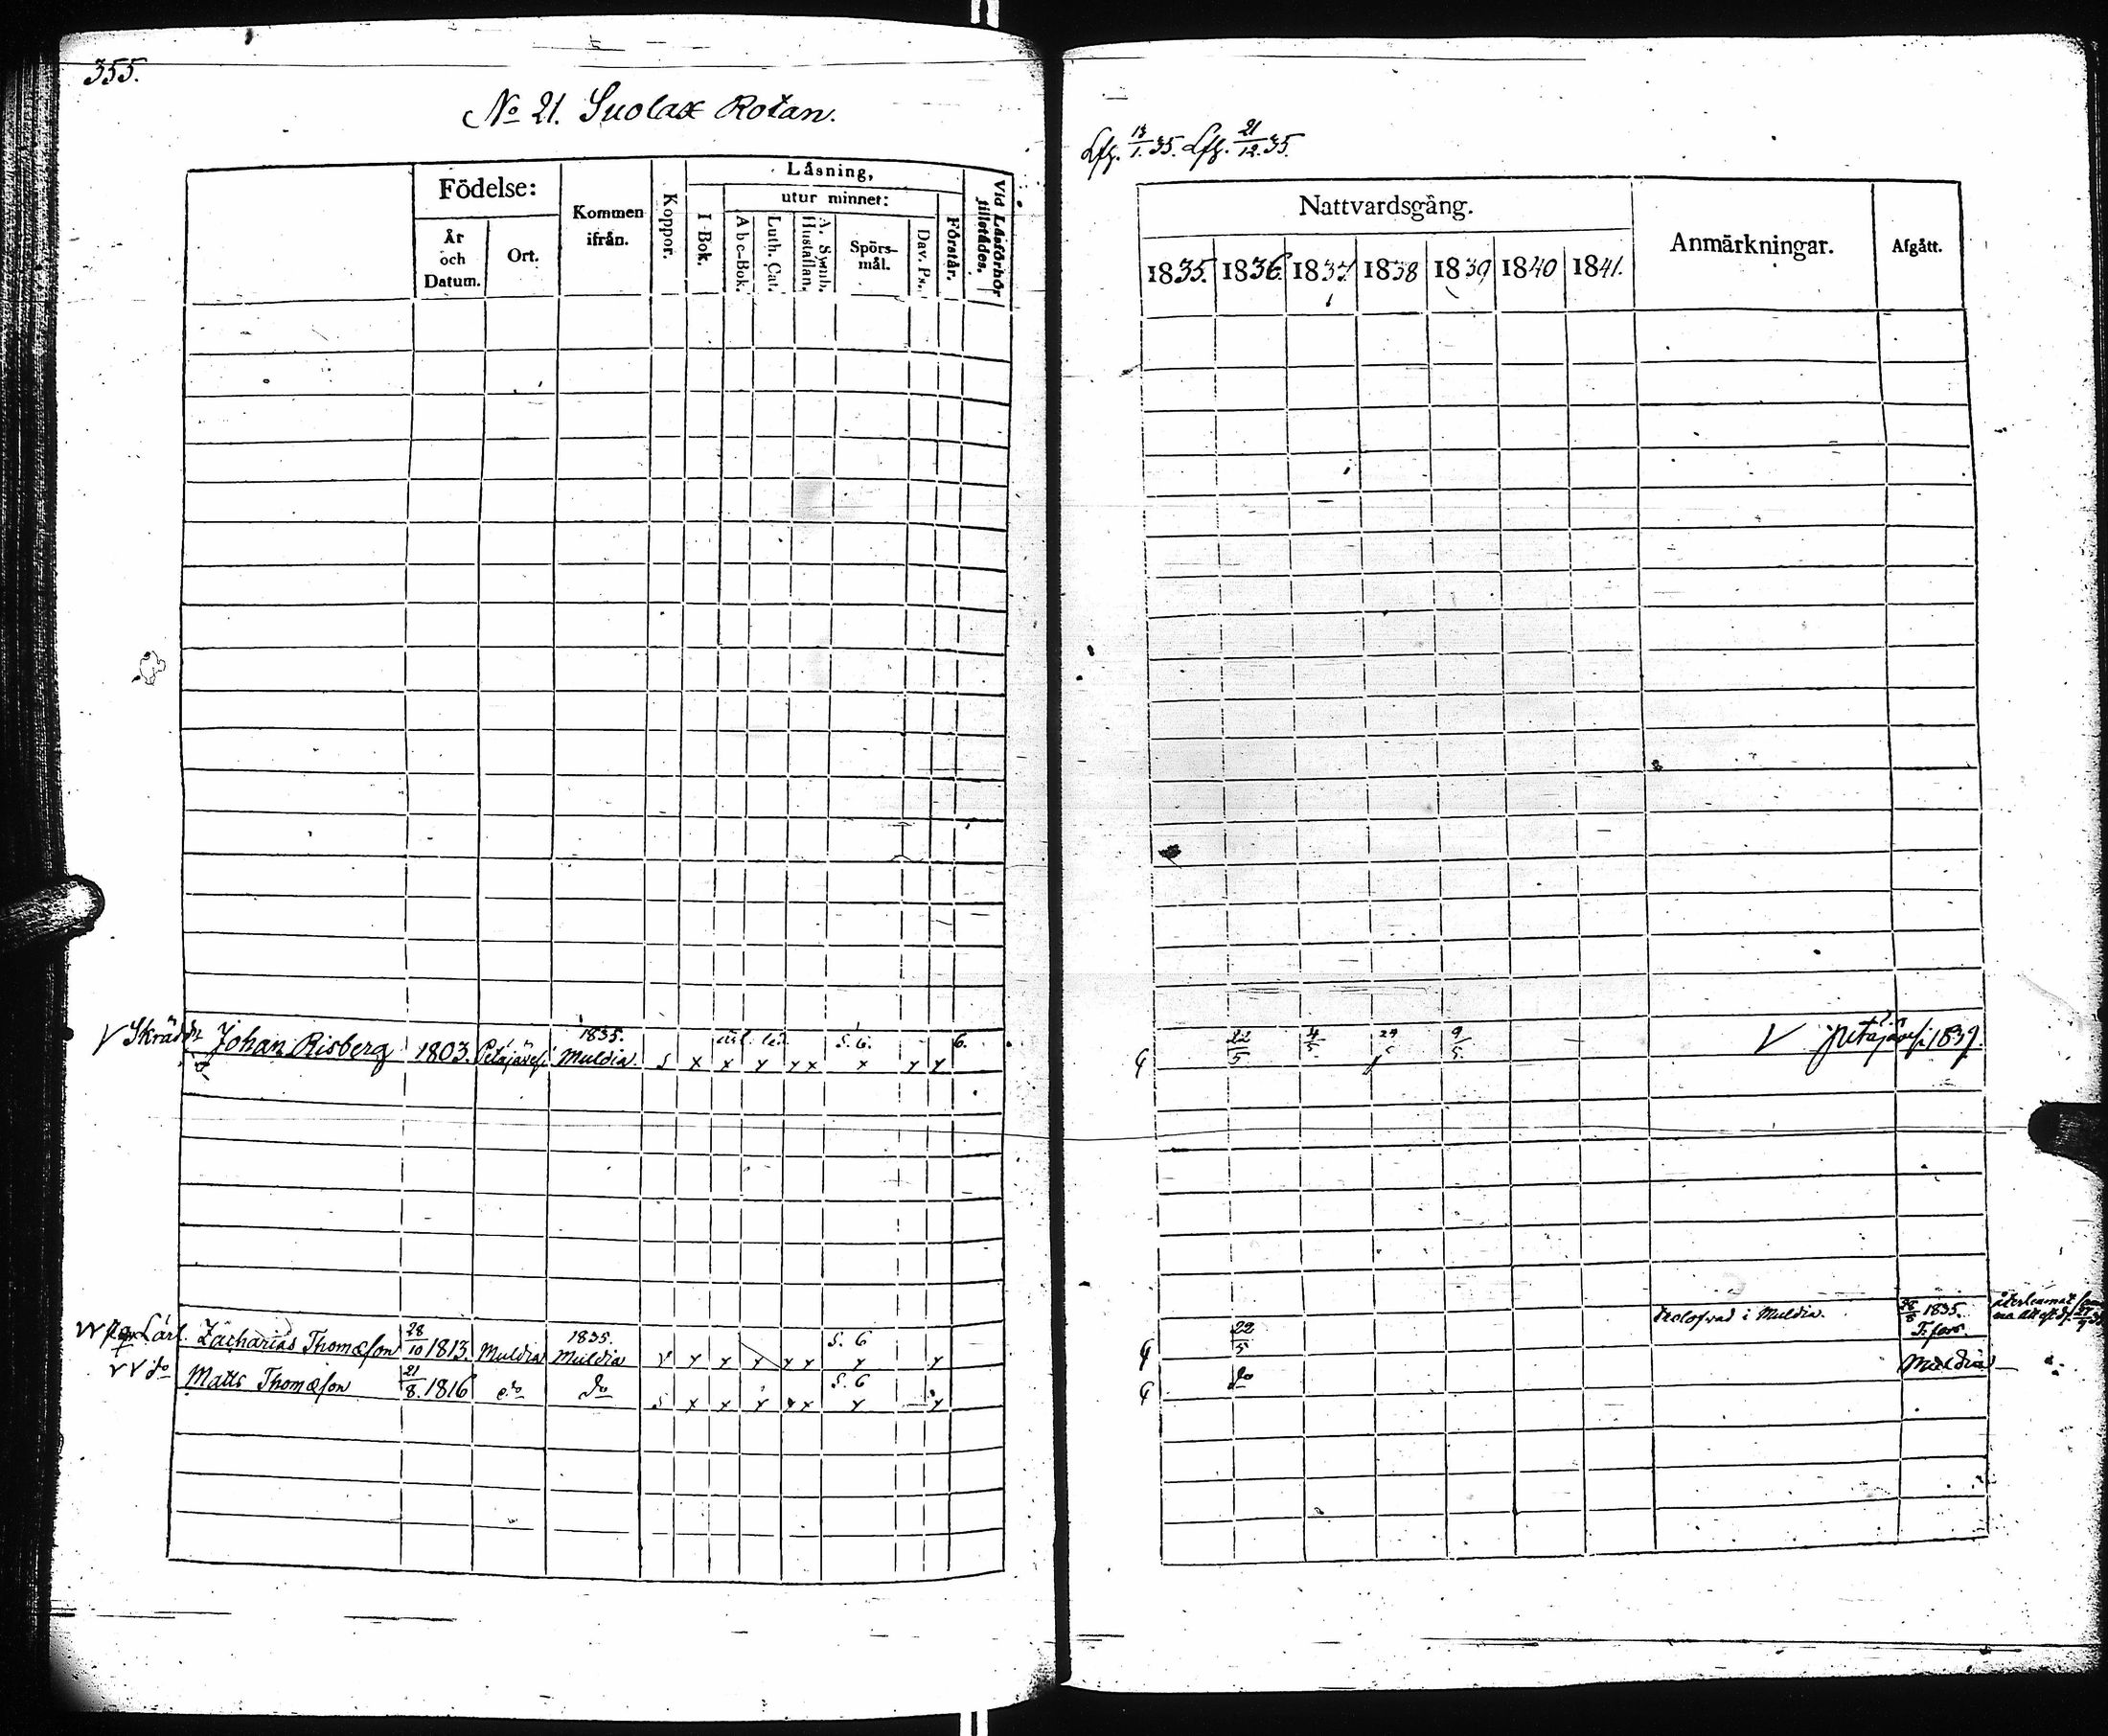 355.
No 21. Suolax Rotan.
Lfh. 13/1. 35. Lfh. 21/12. 35.
Födelse:
År och Datum.
Ort.
Kommen ifrån.
Koppor.
Läsning,
I Bok.
utur minnet:
Abc-Bok.
Luth. Cat.
A. Symb. Hustaflan.
Spörs-mål.
Dav. Ps.
Förstår.
Vid Läsförhör tillstädes.
Nattvardsgång.
1835. 1836. 1837. 1838 1839 1840 1841.
Anmärkningar.
Afgått.
V Skräddr Johan Risberg 1803. Petäjäves. 1835. Muldia. s x x x x x s. 6. x x x 6. 22/5 4/5 9/5 V Petäjäves. 1839.
Lärl. Zacharias Thomæson 28/10 1813. Muldia 1835. Muldia v x x x x x s. 6 x x 22/5 trolofvad i Muldia. 1835. T:fors.
V V do Matts Thomæson 21/8. 1816 do do s x x x x x s. 6 x x do Muldia